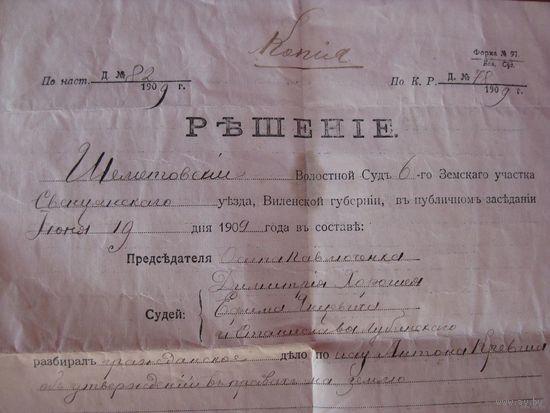 Копія
Форма № 97.
Вол. Суд.
По наст. Д. № 82 1909 г.
По К. Р. Д. № 78 1909 г.
РѢШЕНІЕ.
Шеметовскій Волостной Судъ 6-го Земскаго участка
Свенцянскаго уѣзда, Виленской губерніи, въ публичномъ засѣданіи
Іюня 19 дня 1909 года въ составѣ:
Предсѣдателя Осипа Павлюченка
Димитрія Хорошея
Судей: Ефима
и Станислава Лубинскаго
разбиралъ гражданское дѣло по иску Антона
объ утвержденіи въ правахъ на землю
www.ay.by